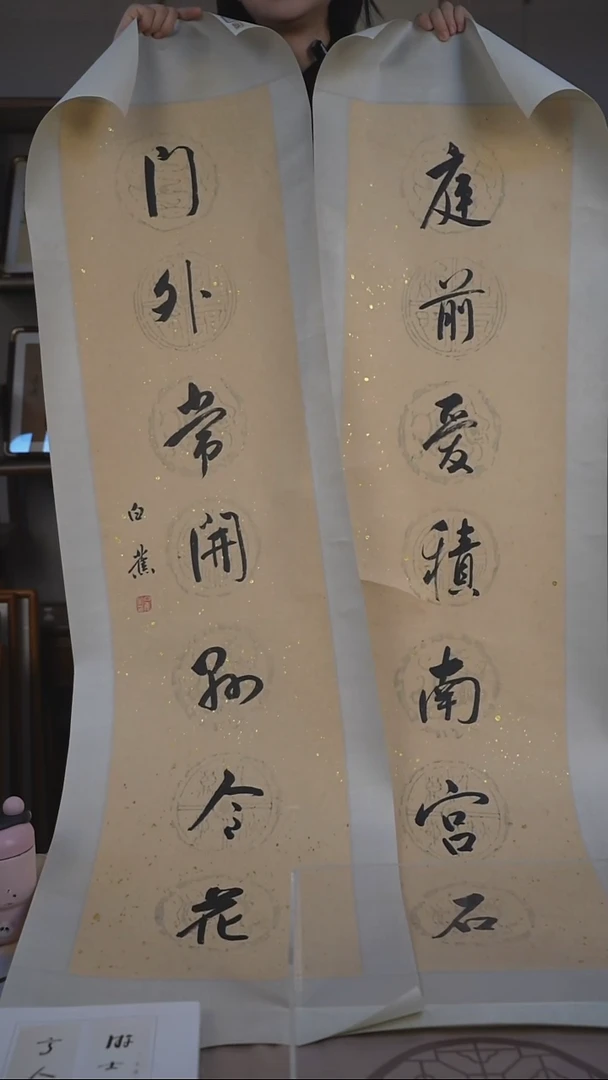 庭前爱積南宫石
门外常開縣令花
白蕉